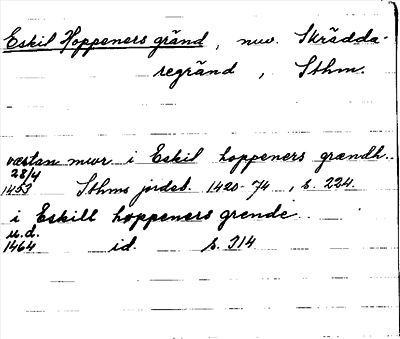 Eskil Hoppeners gränd, nuv. Skrädda-
regränd, Sthm.
væstan mwr i Eskil hoppeners grændh..
28/4
1453 Sthms jordeb. 1420-74, s. 224.
i Eskill hoppeners grende..
u.d.
1464 id. s. 314